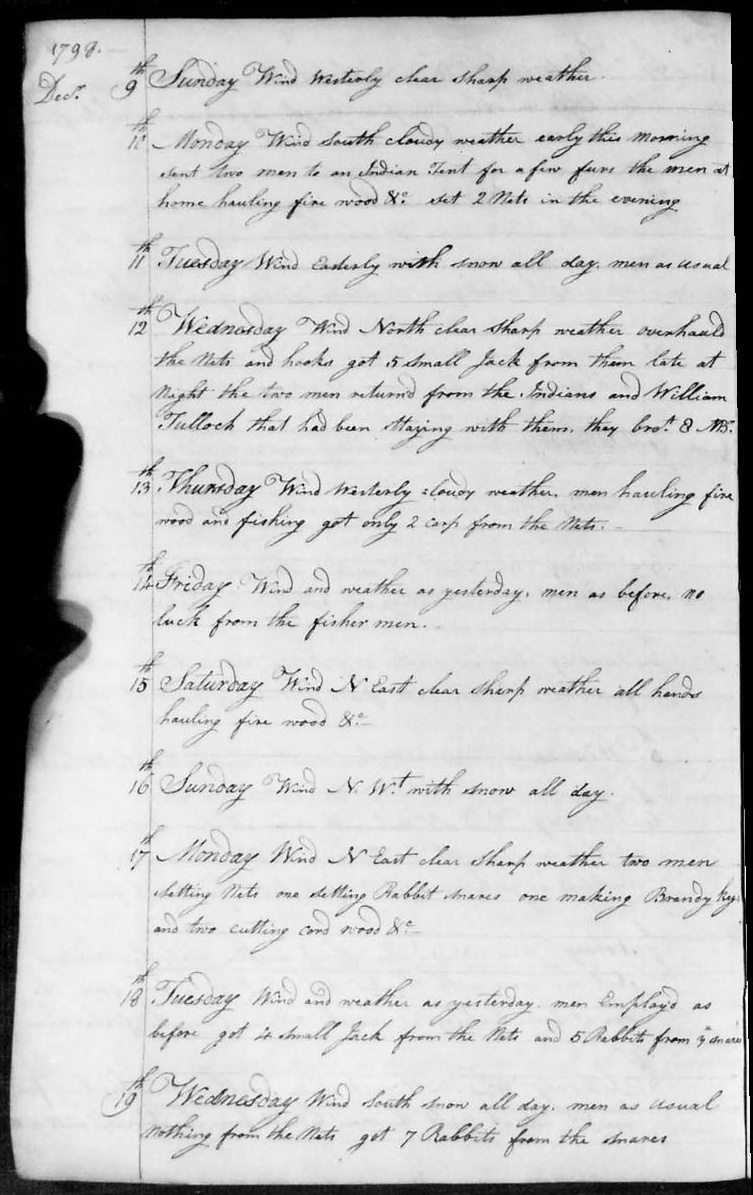 1798.
Decr. 9th Sunday Wind Westerly clear sharp weather.
10th Monday Wind South cloudy weather early this morning
sent two men to an Indian Tent for a few furs the men at
home hauling fire wood &c. set 2 Nets in the evening
11th Tuesday Wind Easterly with snow all day. men as usual
12th Wednesday Wind North clear sharp weather overhauld
the Nets and hooks got 5 small Jack from them late at
Night the two men returnd from the Indians and William
Tulloch that had been staying with them. they brot. 8 MB.
13th Thursday Wind Westerly cloudy weather. men hauling fire
wood and fishing got only 2 carp from the Nets.
14th Friday Wind and weather as yesterday. men as before, no
luck from the fisher men.
15th Saturday Wind N East clear sharp weather all hands
hauling fire wood &c.
16th Sunday Wind N. Wt. with snow all day.
17th Monday Wind N East clear sharp weather two men
setting Nets one setting Rabbit snares one making Brandy kegs
and two cutting cord wood &c.
18th Tuesday Wind and weather as yesterday. men Employd as
before got 4 small Jack from the Nets and 5 Rabbits from ye snares
19th Wednesday Wind South snow all day. men as usual
nothing from the Nets got 7 Rabbits from the snares